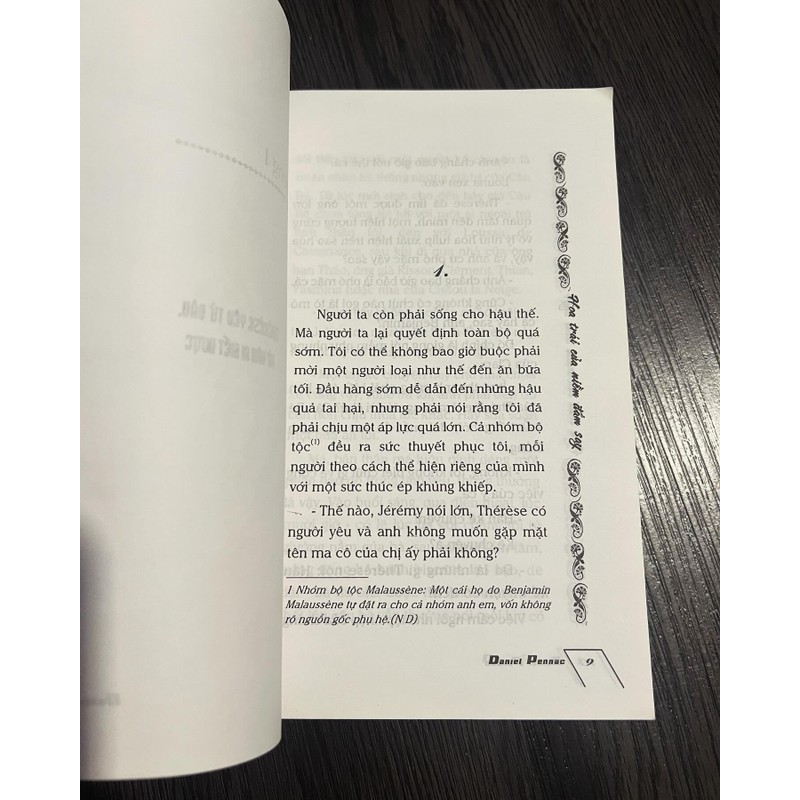 1.
Người ta còn phải sống cho hậu thế.
Mà người ta lại quyết định toàn bộ quá
sớm. Tôi có thể không bao giờ buộc phải
mời một người loại như thế đến ăn bữa
tối. Đầu hàng sớm dễ dẫn đến những hậu
quả tai hại, nhưng phải nói rằng tôi đã
phải chịu một áp lực quá lớn. Cả nhóm bộ
tộc(1) đều ra sức thuyết phục tôi, mỗi
người theo cách thể hiện riêng của mình
với một sức thúc ép khủng khiếp.
- Thế nào, Jérémy nói lớn, Thérèse có
người yêu và anh không muốn gặp mặt
tên ma cô của chị ấy phải không?
1 Nhóm bộ tộc Malaussène: Một cái họ do Benjamin
Malaussène tự đặt ra cho cả nhóm anh em, vốn không
rõ nguồn gốc phụ hệ.(N D)
Daniel Pennac 9
Hoa trái của niềm đắm say